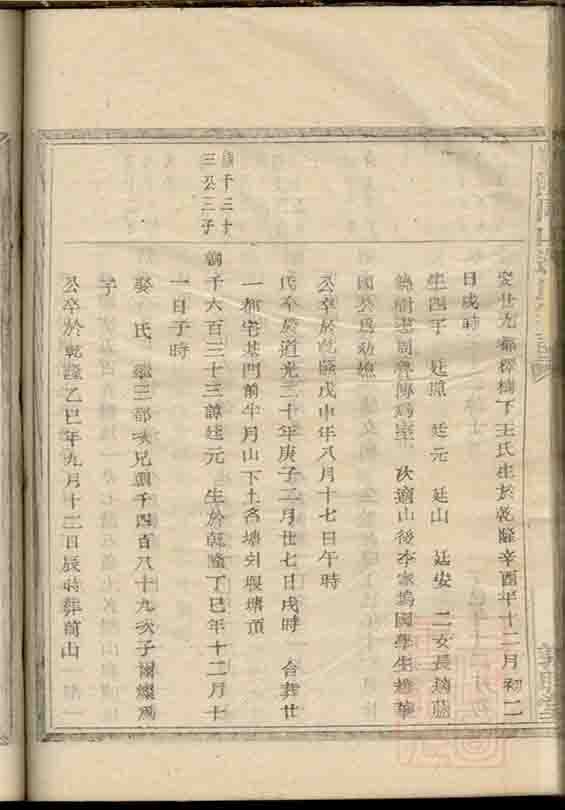 娶廿九都樟樹下王氏生於乾隆辛酉年十二月初二
日戌時
生四子　廷照　廷元　廷山　廷安　二女長適蘇
錦樹老周尊傳為室　次適山後李家塢國學生
國公為幼媳
公卒於乾隆戊申年八月十七日午時
氏卒於道光二十年庚子二月廿七日戌時　合葬廿
一都宅基門前牛月山下土名塘外堰塘頂
朝千三十
三公三子
朝千六百三十三諱廷元　生於乾隆丁巳年十二月十
一日子時
娶　氏　繼三部次兄朝千四百八十九次子爾燦為
子
公卒於乾隆乙巳年九月十二日辰時葬前山